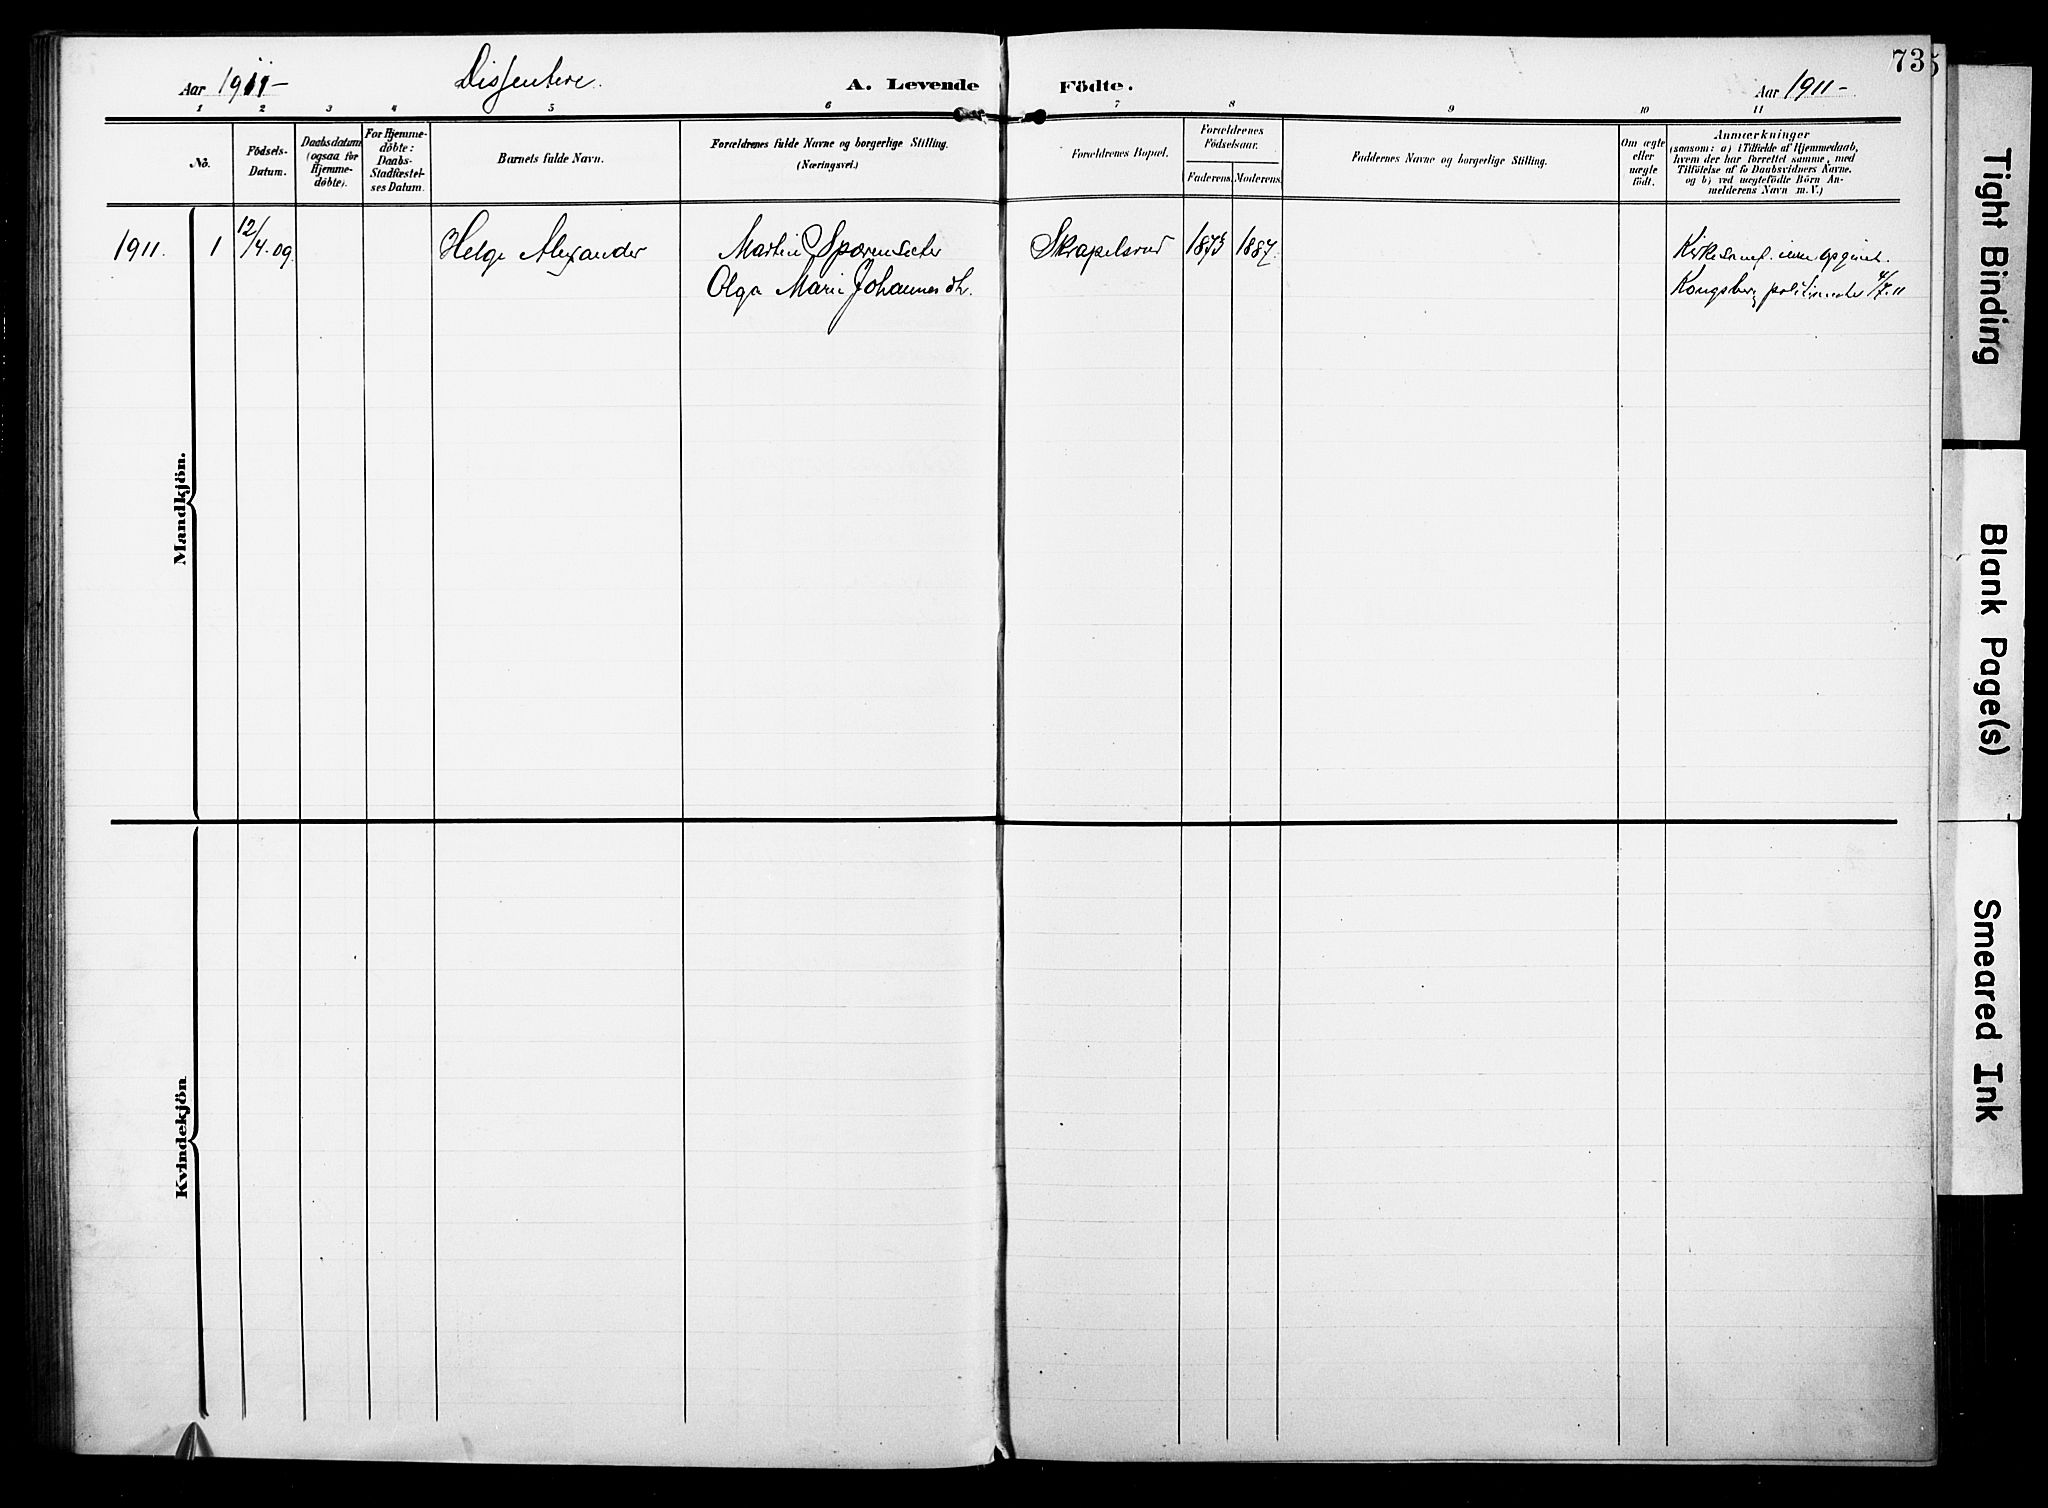 73
Aar 1911-
Dissentere.
A. Levende
Födte.
Aar 1911-
1 2 3 4 5 6 7 8 9 10 11
No.
Födsels-
Datum.
Daabsdatum
(ogsaa for
Hjemme-
döbte).
For Hjemme-
döbte:
Daabs-
Stadfæstel-
ses Datum.
Barnets fulde Navn.
Forældrenes fulde Navne og borgerlige Stilling.
(Næringsvei.)
Forældrenes Bopæl.
Forældrenes
Födselsaar.
Faderens. Moderens.
Faddernes Navne og borgerlige Stilling.
Om ægte
eller
uægte
födt.
Anmærkninger
(saasom: a) i Tilfælde af Hjemmedaab,
hvem der har forrettet samme, med
Tilföielse af to Daabsvidners Navne,
og b) ved uægtefödte Börn An-
melderens Navn m. V.)
Mandkjön.
1911. 1 12/4.09 Helge Alexander Martin Sporensæter Skrapelsrud 1873 1887. Kirkesamf. opgivet.
Olga Marie Johannes dt. Kongsberg politimester 4/7.11
Kvindekjön
Tight Binding
Blank Page(s)
Smeared Ink